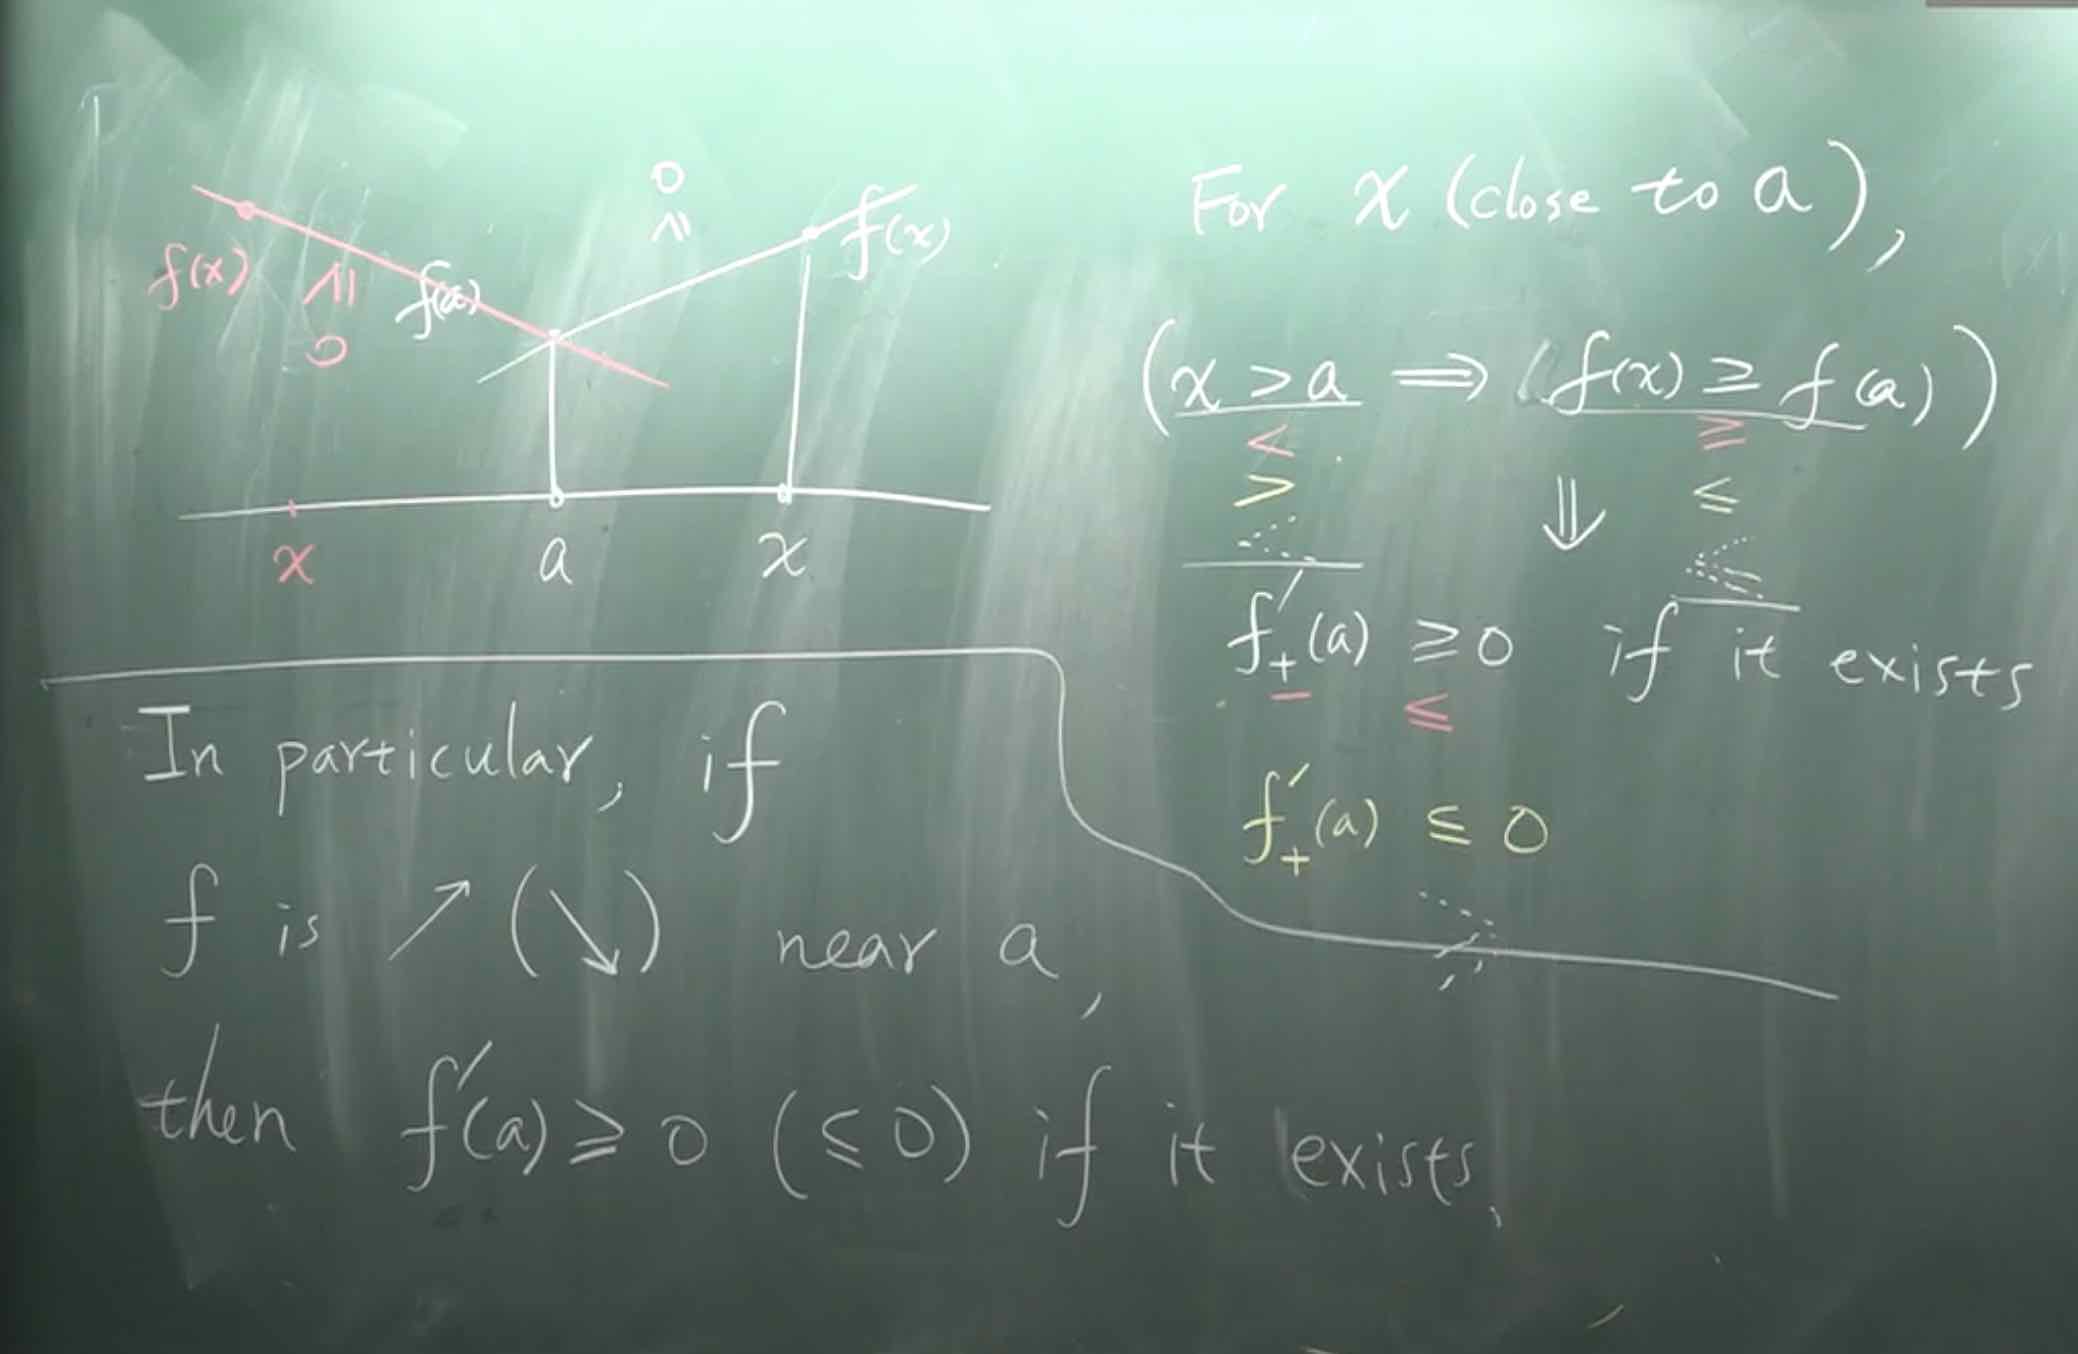 0
≧
f(x)
f(x) ≧ 0
f(a)
x a x
For x (close to a),
(x > a ⟹ (f(x) ≥ f(a))
< ≥
> ⇓ ≤
f'₊(a) ≥ 0 if it exists
− ≤
f'₊(a) ≤ 0
In particular, if
f is ↗ (↘) near a,
then f'(a) ≥ 0 (≤ 0) if it exists.